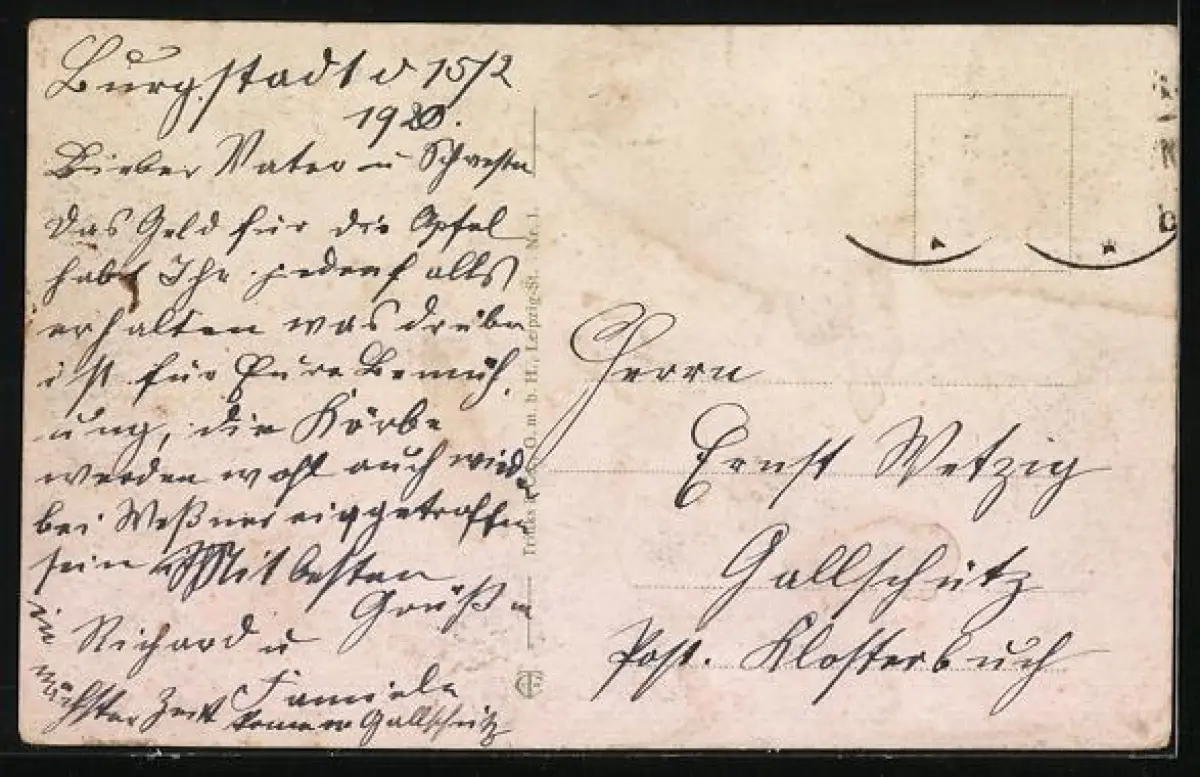 Burgstädt d 15/2
1920.
Lieber Vater u Schwester
Das Geld für die Apfel
habt Ihr jedenfalls
erhalten was drüber
ist für Eure Bemüh,
ung, die Körbe
werden wohl auch wied
bei Meßner eingetroffen
sein Mit besten
Grüß
Richard u
Familie
in
nächster Zeit komm Gallschütz
Trinks & Co. G. m. b. H., Leipzig-St. Nr. 1.
Herrn
Ernst Wetzig
Gallschütz
Post. Klosterbuch